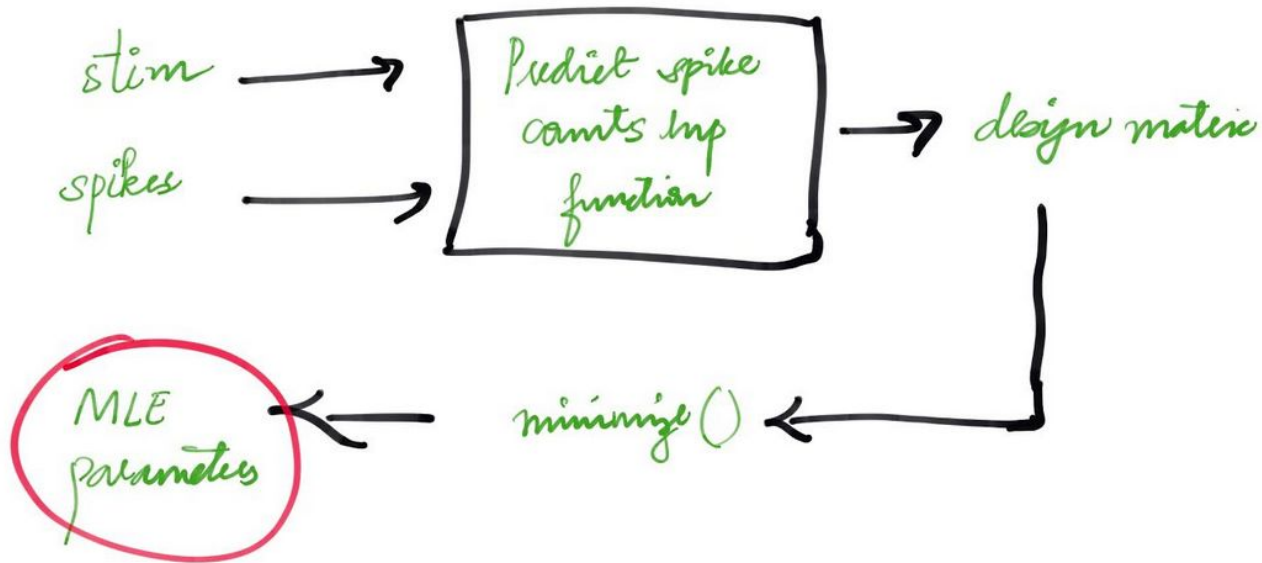 stim
spikes
Predict spike
counts lnp
function
design matrix
minimize()
MLE
parameters